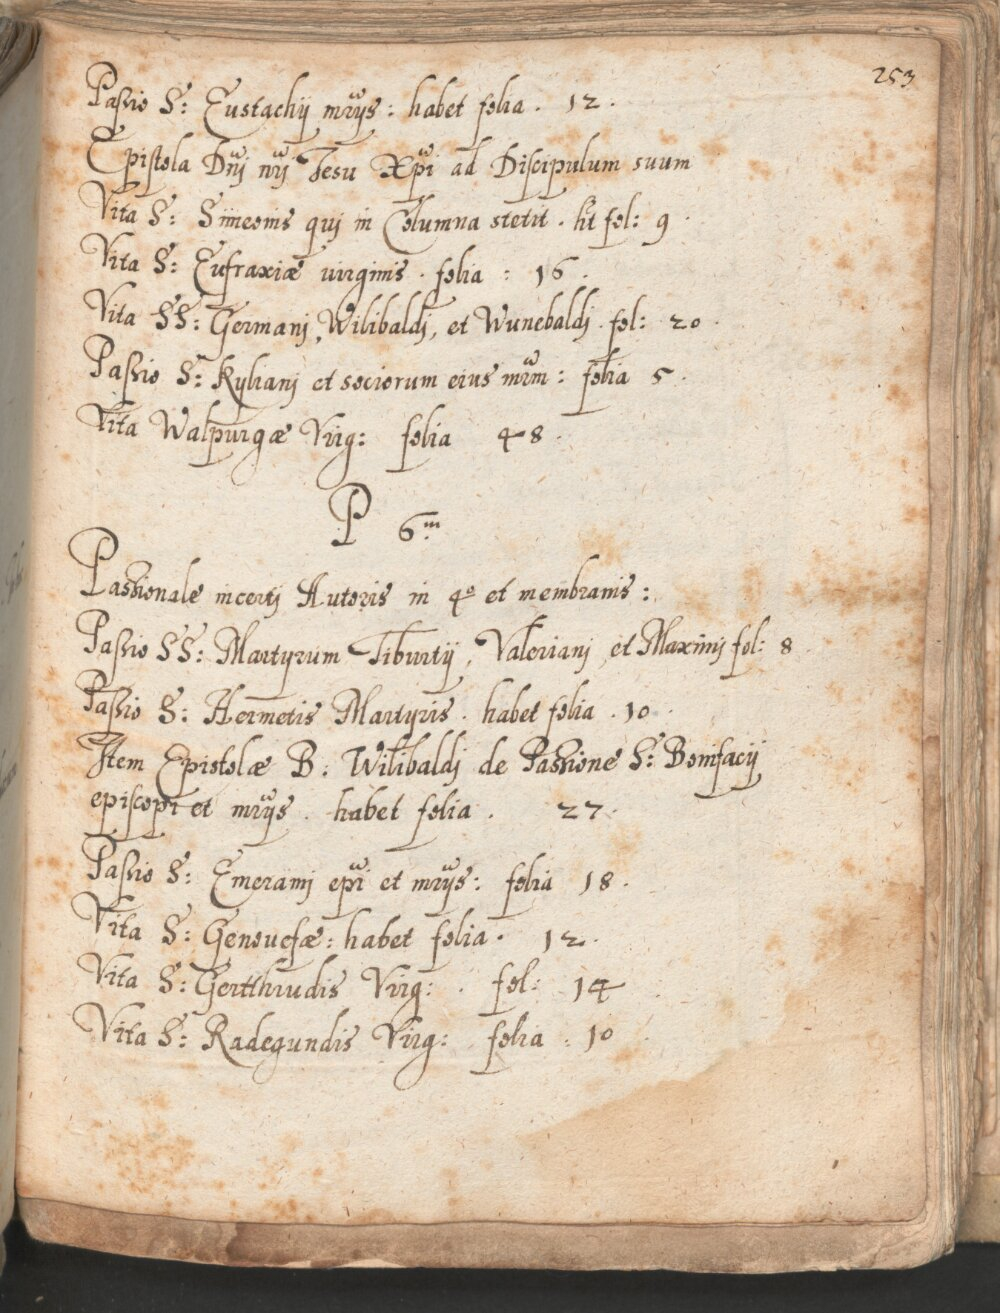 253
Passio S: Eustachij mrijs: habet folia. 12.
Epistola Dnj nrj Jesu Xpi ad Discipulum suum
Vita S: Simeonis quj in Columna stetit. ht fol: 9.
Vita S: Eufraxiæ uirginis. folia: 16.
Vita SS: Germanj, Wilibaldj, et Wunebaldj. fol: 20.
Passio S: Kylianj et sociorum eius mrm: folia 5.
Vita Walpurgæ Virg: folia 48.
P 6m
Passionale incertj Autoris in 4o et membranis:
Passio SS: Martyrum Tiburtij, Valerianj, et Maximj fol: 8.
Passio S: Hermetis Martyris. habet folia. 10.
Item Epistolæ B: Wilibaldj de Passione S: Bonifacij
episcopi et mrijs. habet folia. 27.
Passio S: Emeramj epi et mrijs: folia 18.
Vita S: Genouefæ: habet folia. 12.
Vita S: Gertthrudis Virg: . fol: 14
Vita S: Radegundis Virg: folia: 10.